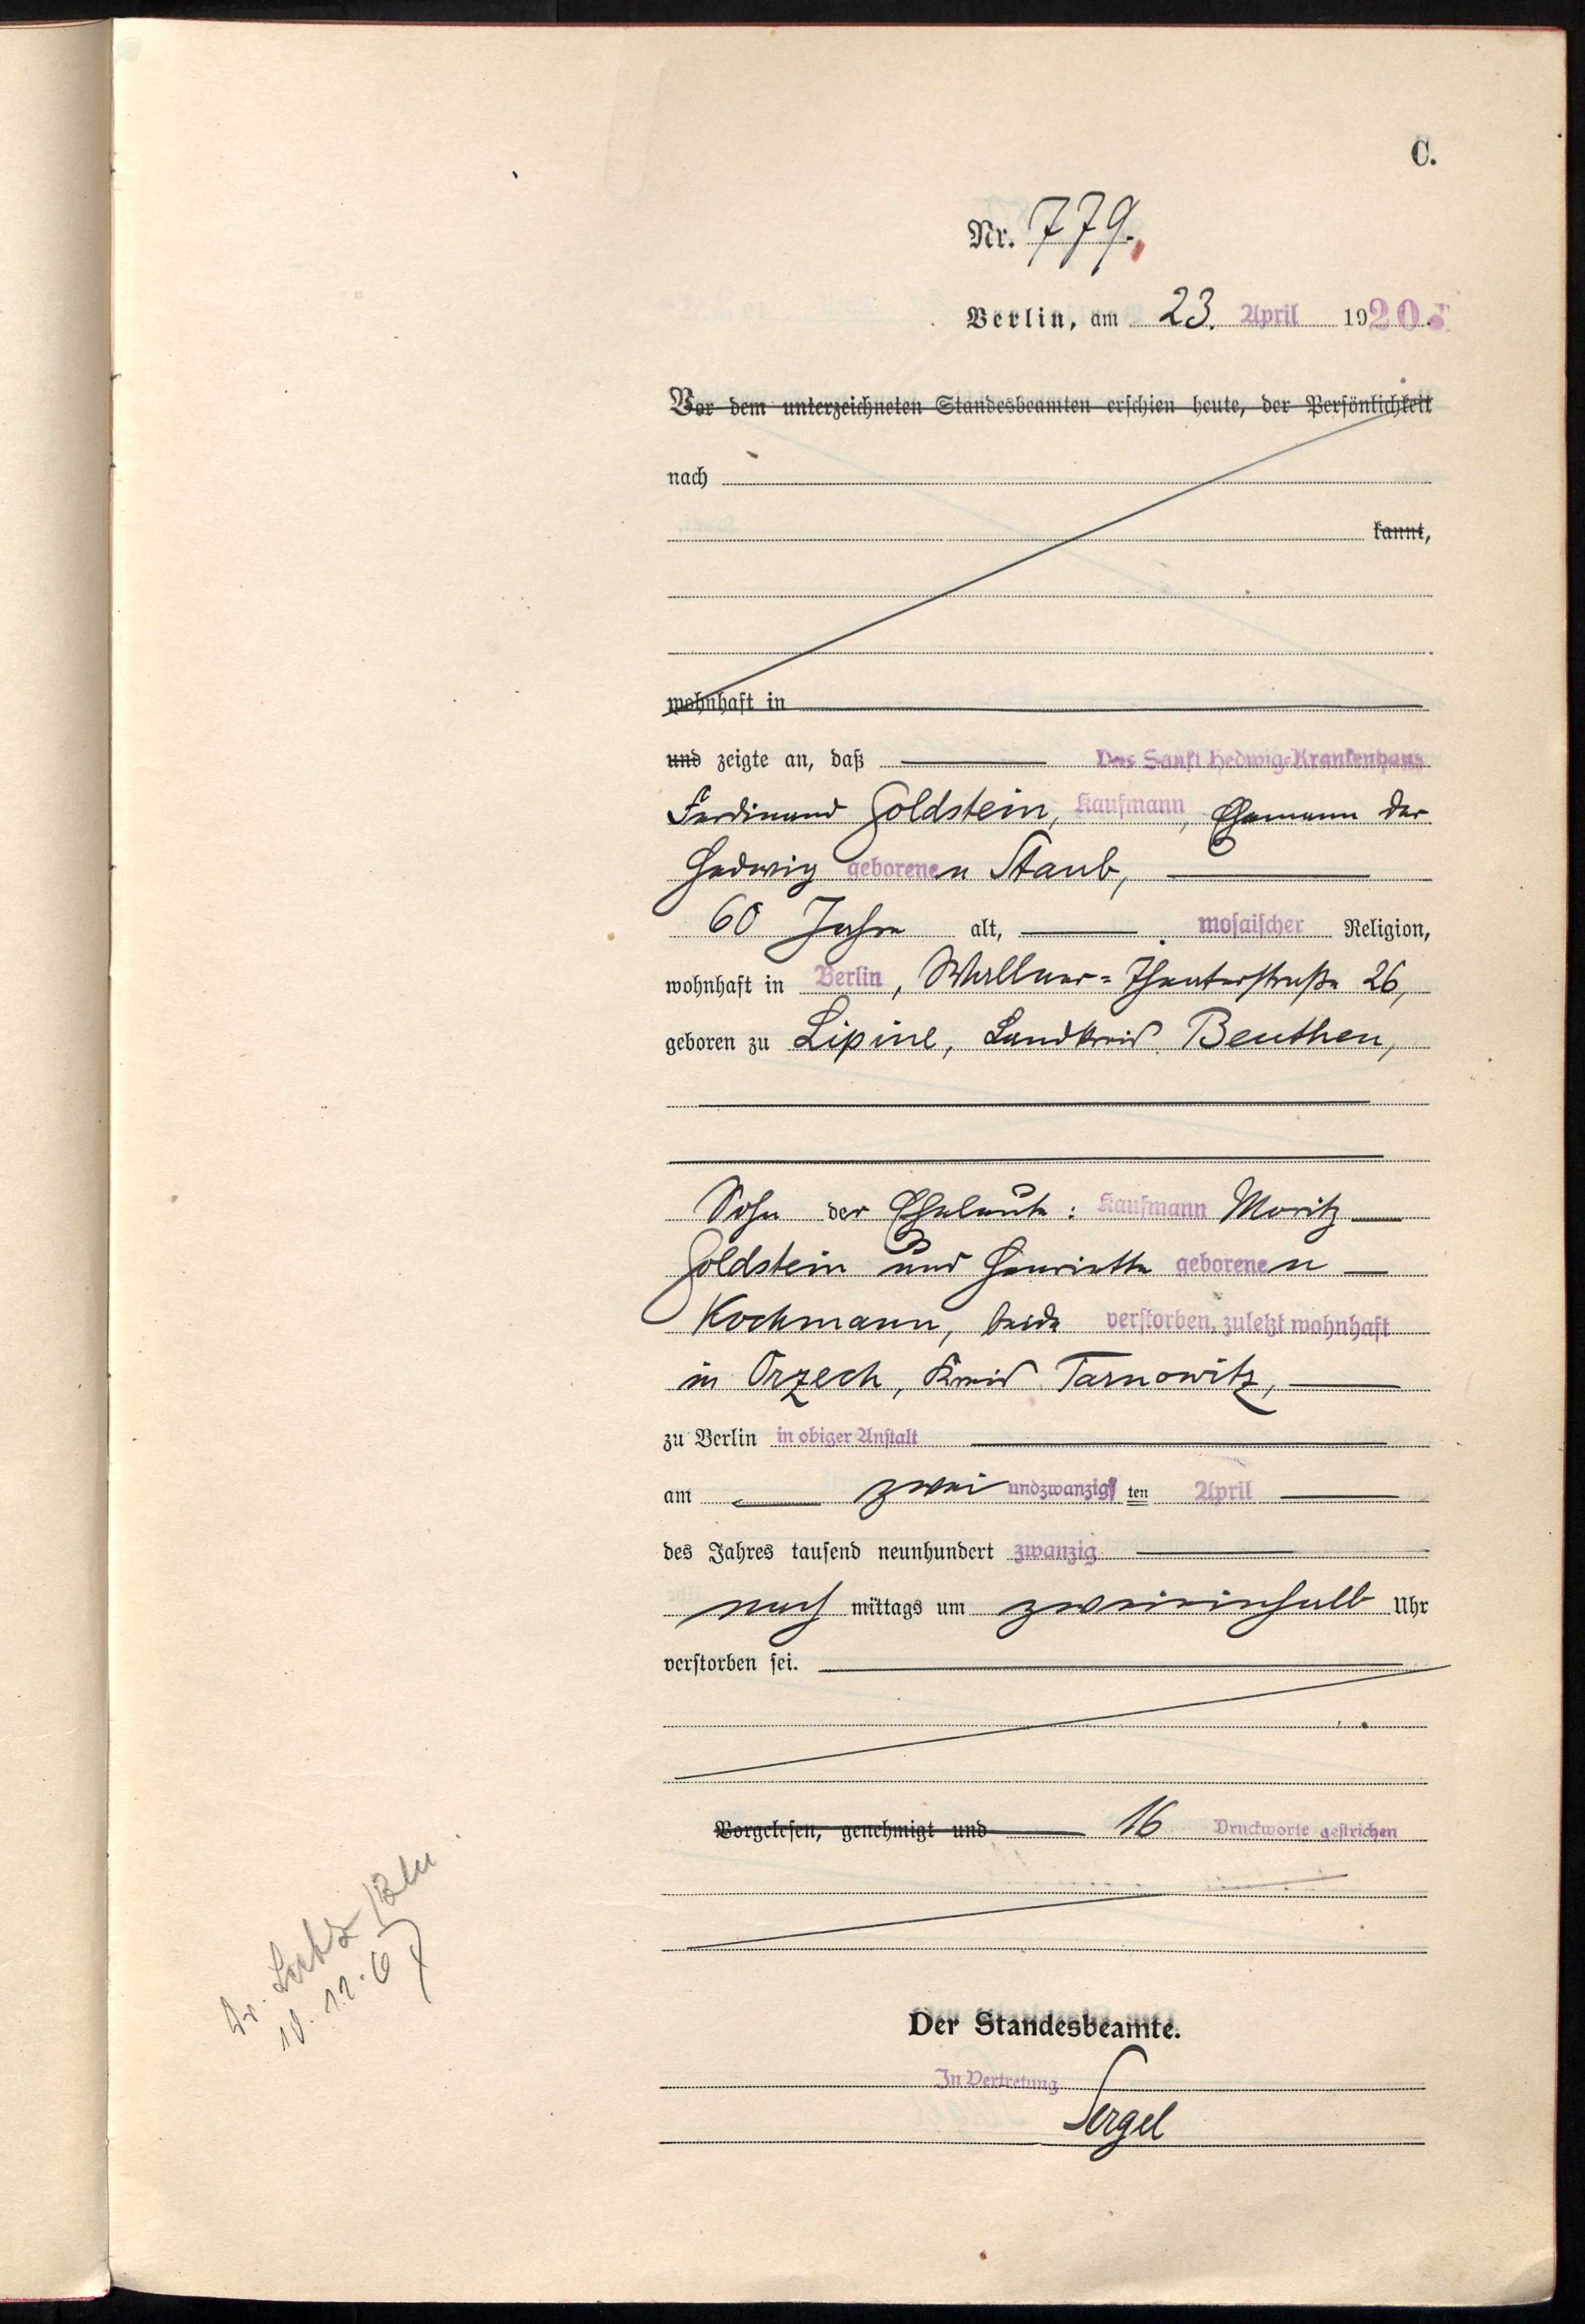 C.
Nr. 779.
Berlin, am 23. April 1920.
Vor dem unterzeichneten Standesbeamten erschien heute, der Persönlichkeit
nach
kannt,
wohnhaft in
und zeigte an, daß Das Sankt Hedwig-Krankenhaus
Ferdinand Goldstein, Kaufmann, Ehemann der
Hedwig geborenen Staub,
60 Jahre alt, mosaischer Religion,
wohnhaft in Berlin, Wallner-Theaterstraße 26,
geboren zu Lipine, Landkreis Beuthen,
Sohn der Eheleute: Kaufmann Moritz
Goldstein und Henriette geborenen
Kochmann, beide verstorben, zuletzt wohnhaft
in Orzech, Kreis Tarnowitz,
zu Berlin in obiger Anstalt
am zweiundzwanzigsten April
des Jahres tausend neunhundert zwanzig
nachmittags um zweieinhalb Uhr
verstorben sei.
Vorgelesen, genehmigt und 16 Druckworte gestrichen
Der Standesbeamte.
In Vertretung
Sergel